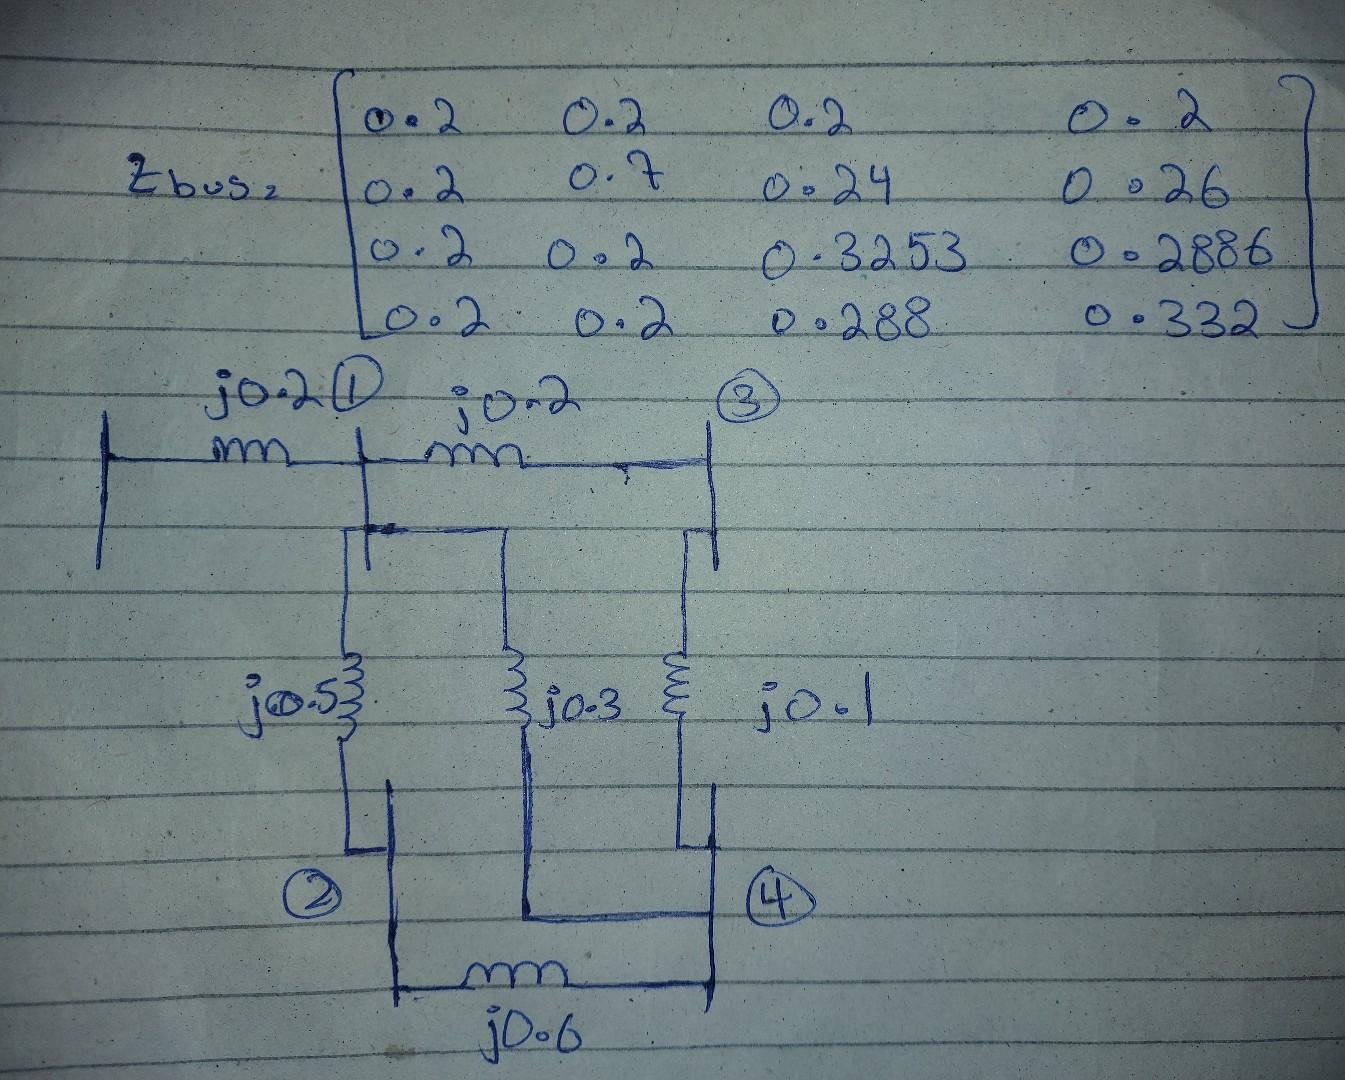 0.2 0.2 0.2 0.2
Zbus= 0.2 0.7 0.24 0.26
0.2 0.2 0.3253 0.2886
0.2 0.2 0.288 0.332
j0.2 ① j0.2 ③
j0.5 j0.3 j0.1
② ④
j0.6